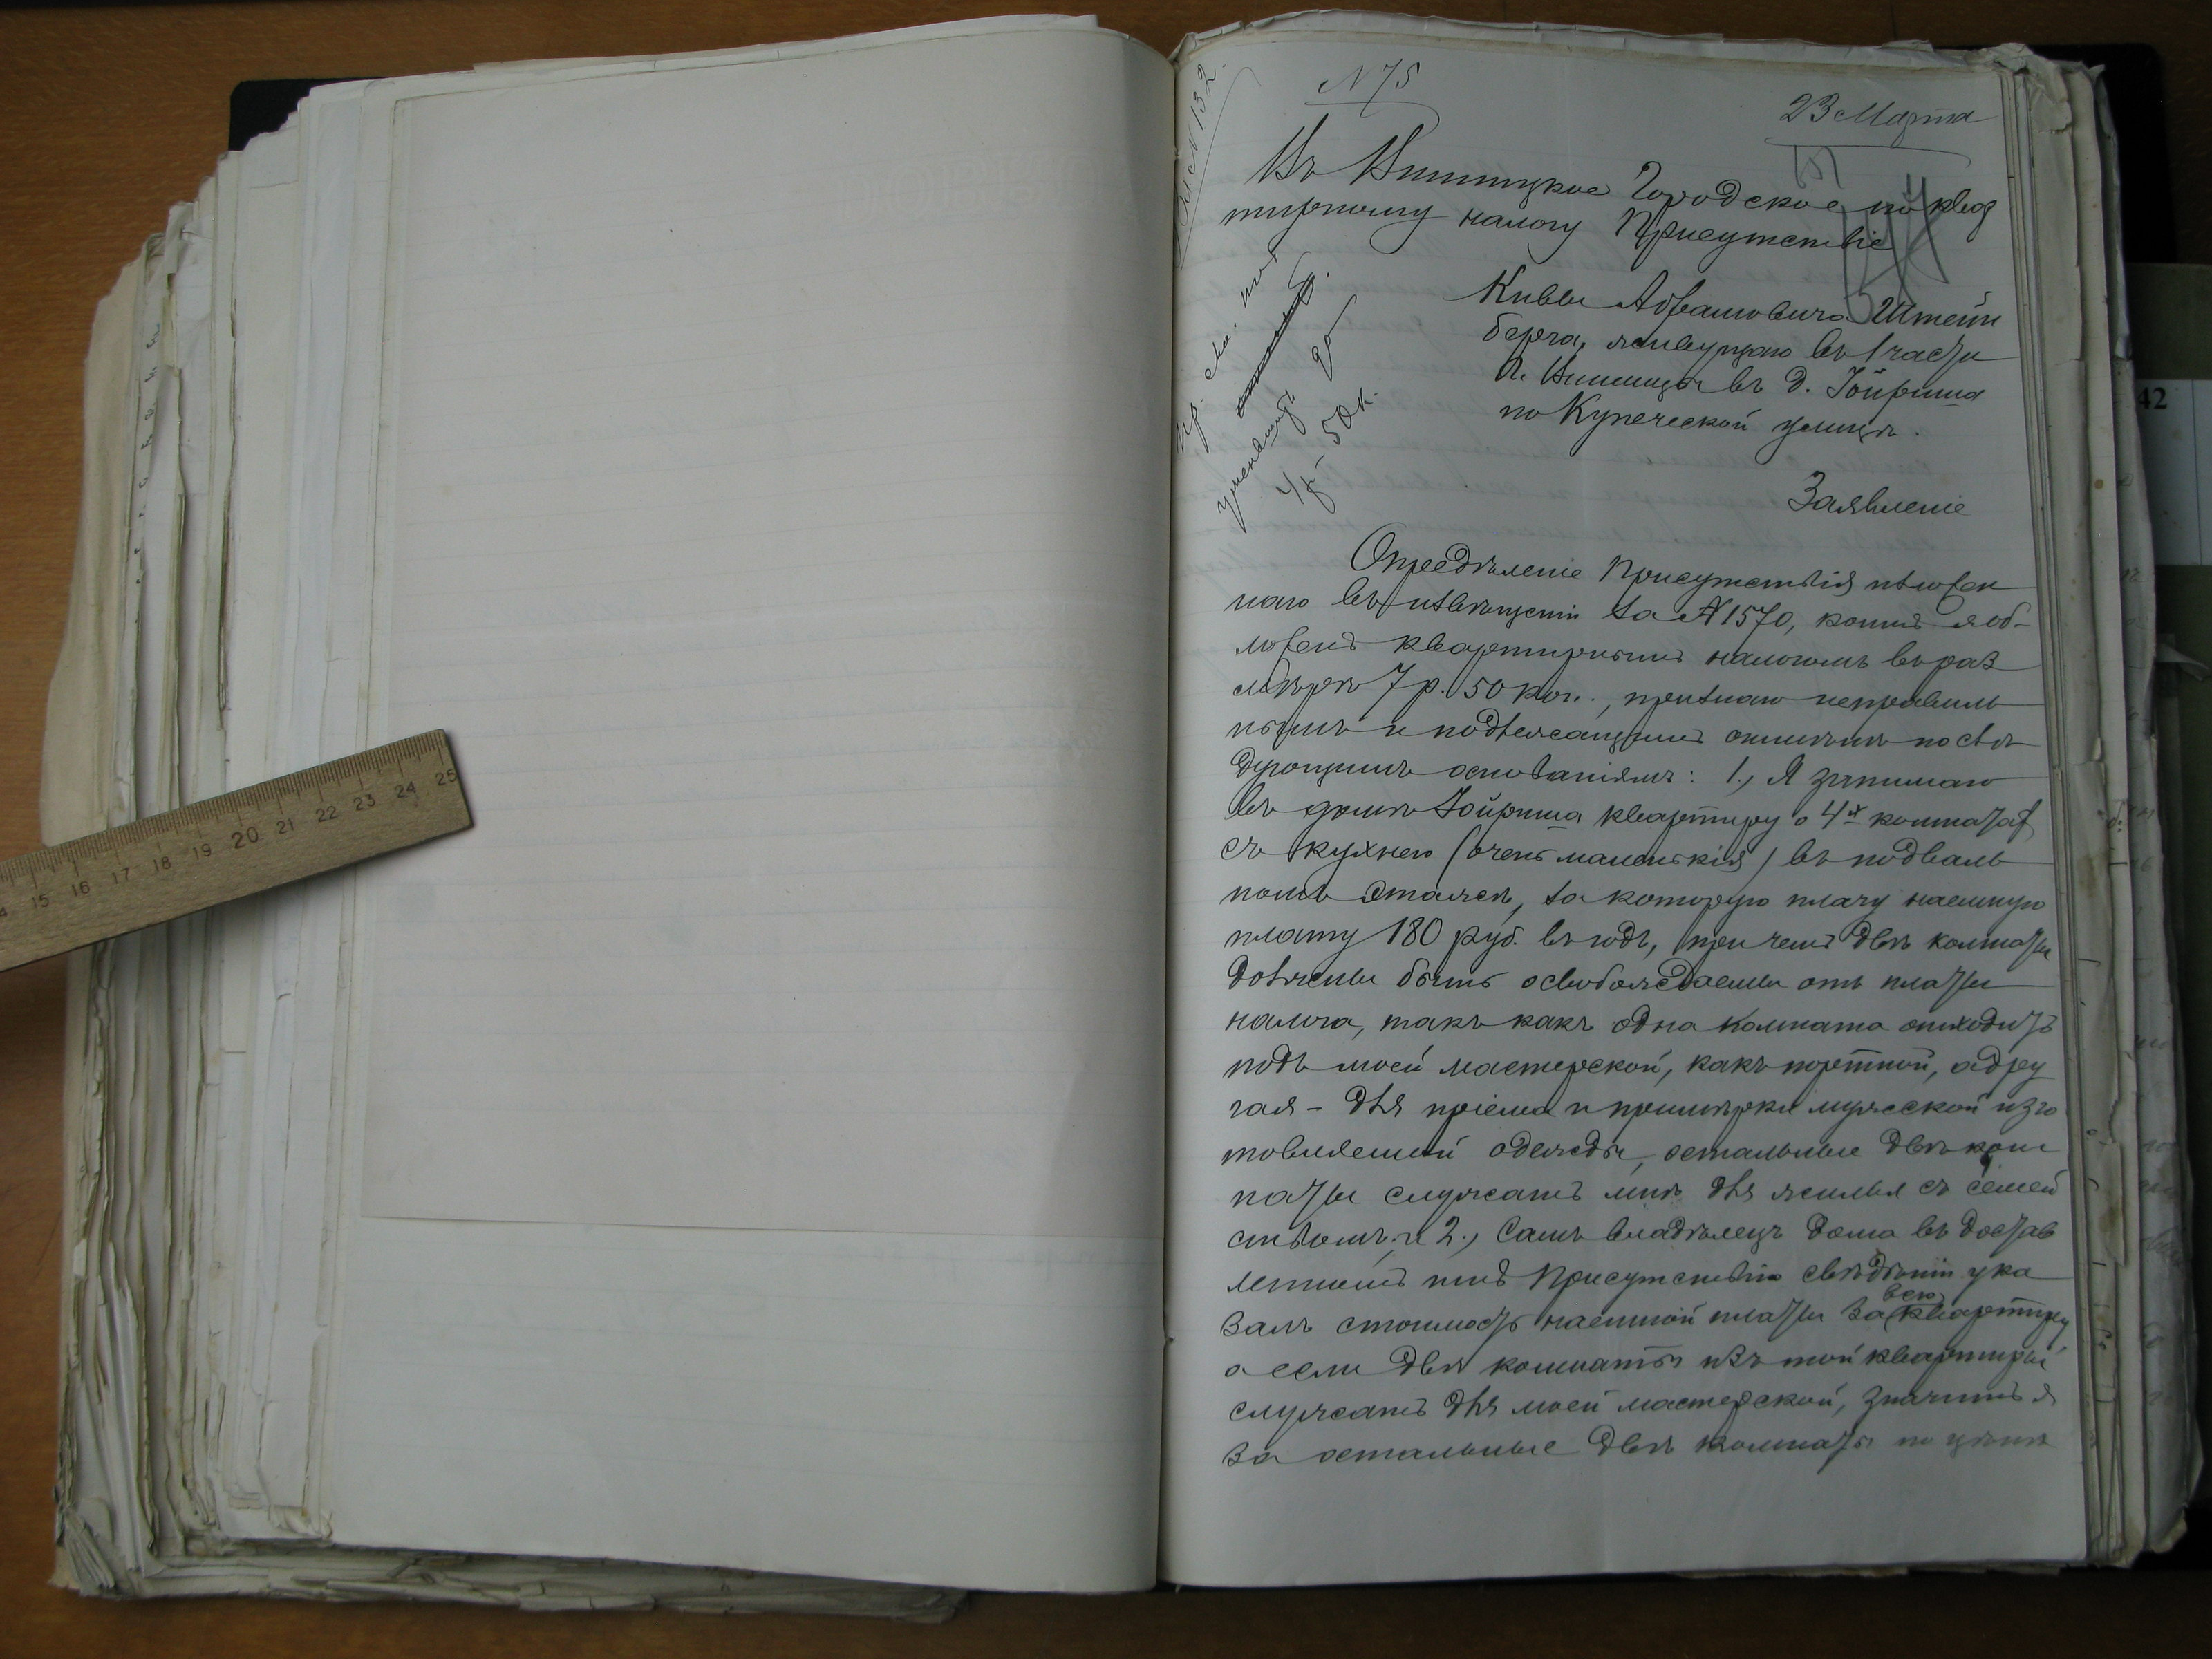 N 75
23 Марта
Въ Винницкое Городское по квар
тирному налогу Присутствіе
Кивы Абрамовича Штейн
берга, живущаго въ 1 части
г. Винницы въ д. Іойриша
по Купеческой улицѣ.
уменьшить до
4 р 50 к.
Заявленіе
Опредѣленіе Присутствія изложен
ною въ извѣщеніи за № 1570, коимъ я об-
ложенъ квартирнымъ налогомъ въ раз
мѣрѣ 7 р. 50 коп., признаю неправиль
нымъ и подлежащимъ отмѣнѣ по слѣ
дующимъ основаніямъ: 1., Я занимаю
въ домѣ Іойриша квартиру о 4х комнатах
съ кухнею (очень маленькія) въ подваль
номъ этажѣ, за которую плачу наемную
плату 180 руб. въ годъ, при чемъ двѣ комнаты
должны быть освобождаемы отъ платы
налога, такъ какъ одна комната отходитъ
подъ моей мастерской, какъ портной, а дру
гая - для пріема и примѣрки мужской изго
товляемой одежды, остальные двѣ ком
наты служатъ мнѣ для жилья съ семей
ствомъ; и 2., Самъ владѣлецъ дома въ достав
ленномъ имъ Присутствію свѣдѣніи ука
залъ стоимость наемной платы за всю квартиру
а если двѣ комнаты изъ той квартиры
служатъ для моей мастерской, значитъ я
за остальные двѣ комнаты по цѣнѣ
15 16 17 18 19 20 21 22 23 24 25
42